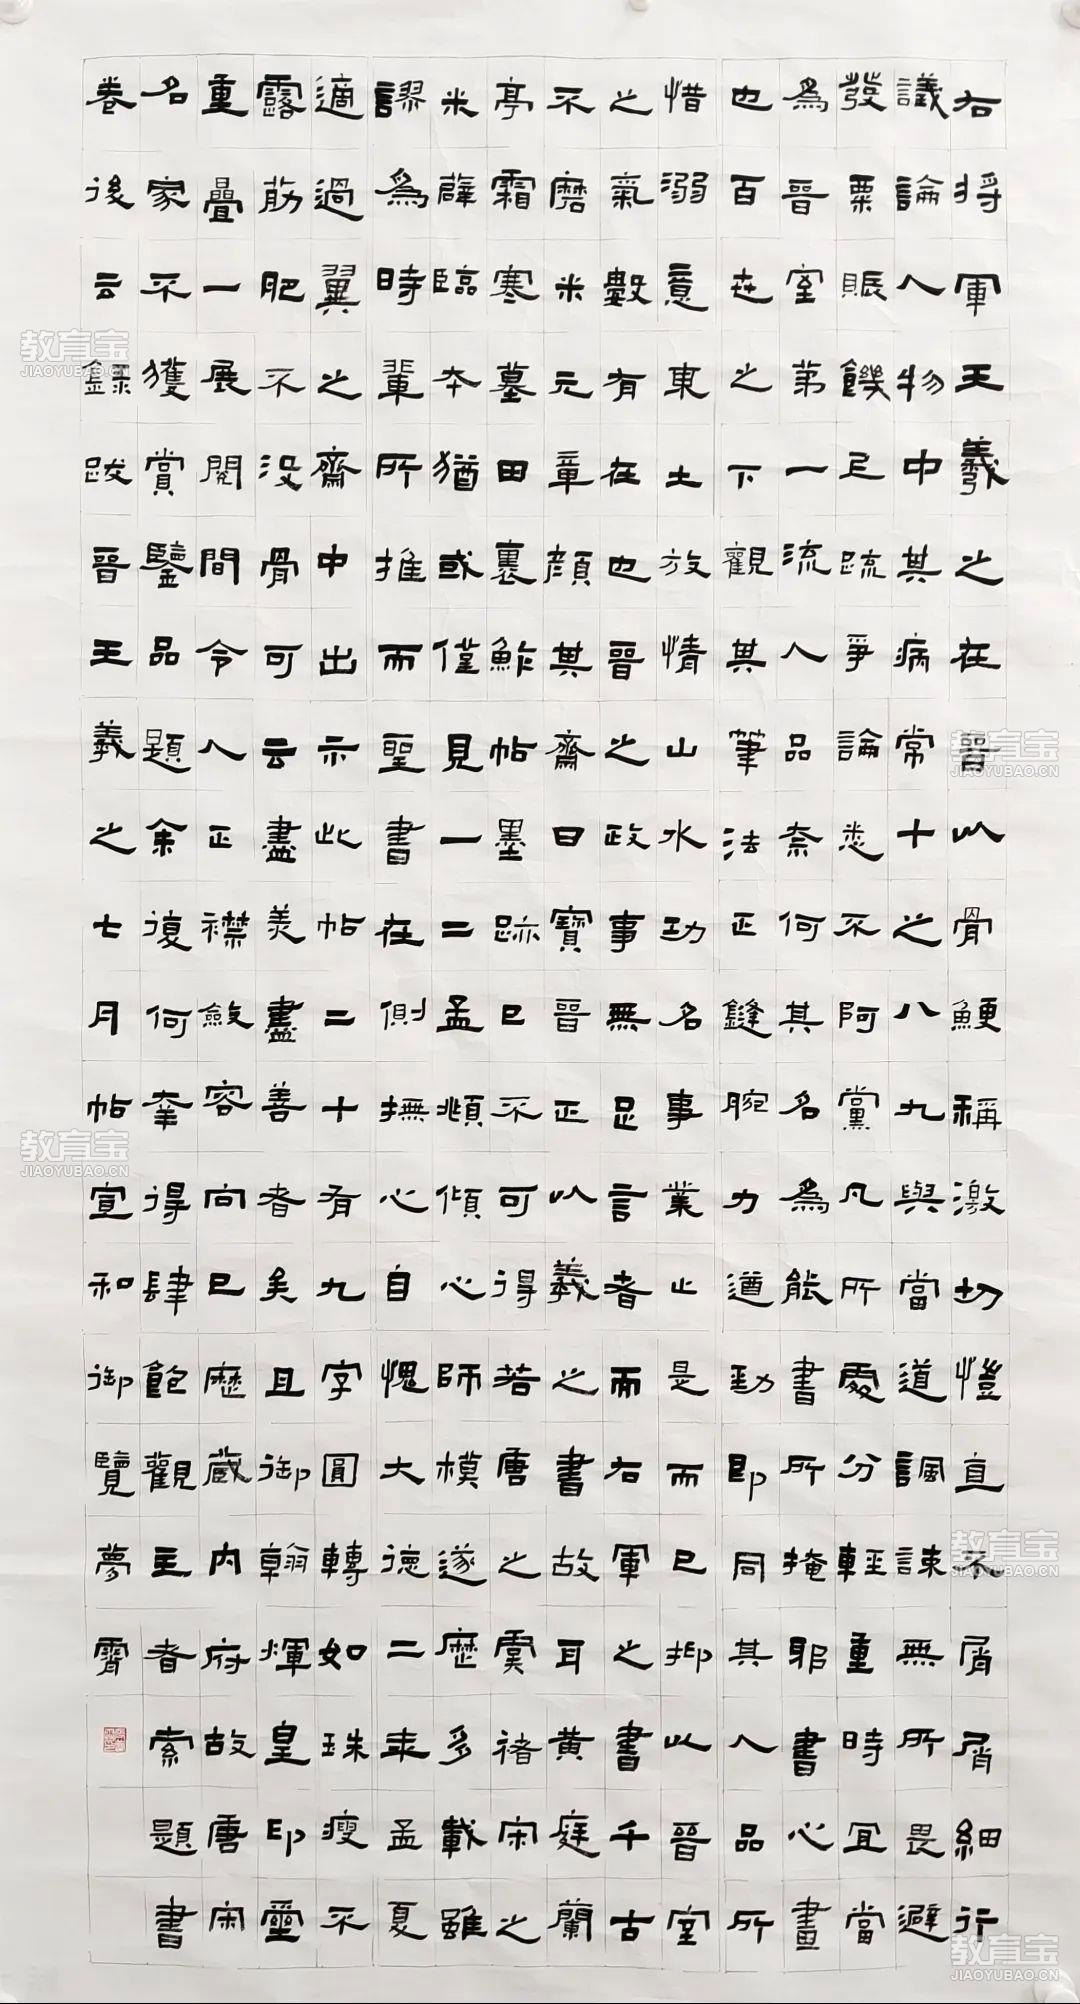 右将軍王羲之在晉以骨鯁稱激切愷直不屑屑細行
議論人物中其病常十之八九與當道諷諫無所畏避
發粟賑饑上疏爭論悉不阿黨凡所處分輕重時宜當
為晉室第一流人品奈何其名為能書所掩耶書心畫
也百世之下觀其筆法正鋒腕力遒勁即同其人品所
惜溺意東土放情山水功名事業止是而已抑此晉室
之氣數有在也晉之政事無足言者而右軍之書千古
不磨米元章顔其齋曰寶晉正以羲之書故耳黃庭蘭
亭霜寒墓田裹鮓帖墨跡已不可得若唐之虞褚宋之
米薛臨本猶或僅見一二孟頫傾心師模遂歷多載雖
謬為時輩所推而聖書在側撫心自愧大德二年孟夏
適過翼之齋中出示此帖二十有九字圓轉如珠瘦不
露筋肥不没骨可云盡美盡善者矣且御翰煇皇印璽
重疊一展閱間令人正襟斂容向已歷蔵内府故唐宋
名家不獲賞鑒品題余復何幸得肆飽觀主者索題書
卷後云録跋晉王羲之七月帖宣和御覽夢霄
教育宝
JIAOYUBAO.CN
教育宝
JIAOYUBAO.CN
教育宝
JIAOYUBAO.CN
教育宝
JIAOYUBAO.CN
教育宝
JIAOYUBAO.CN